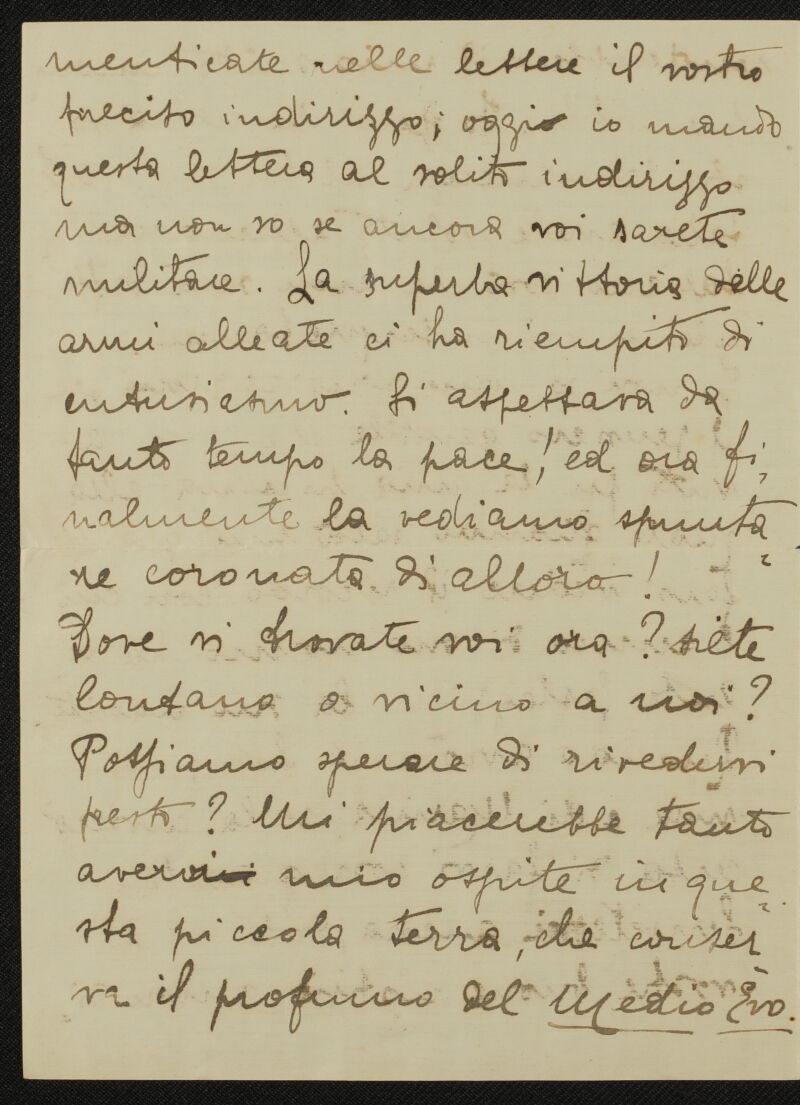 menticate nelle lettere il vostro
preciso indirizzo; oggi io mando
questa lettera al solito indirizzo
ma non so se ancora voi sarete
militare. La superba vittoria delle
armi alleate ci ha riempito di
entusiasmo. Si aspettava da
tanto tempo la pace! ed ora fi-
nalmente la vediamo spunta-
re coronata di alloro!
Dove vi trovate voi ora? siete
lontano o vicino a noi?
Possiamo sperare di rivedervi
presto? Mi piacerebbe tanto
avervi mio ospite in que-
sta piccola terra, che conser-
va il profumo del Medio Evo.